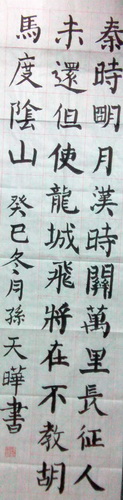 秦時明月漢時關萬里長征人
未還但使龍城飛將在不教胡
馬度陰山 癸巳冬月孫天暐書